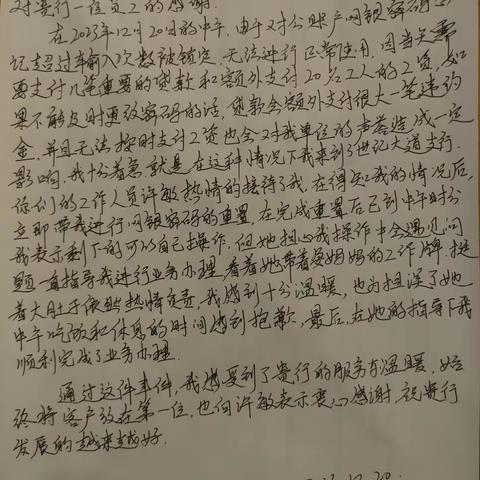 对贵行一位员工的感谢。
在2023年12月20日的中午，由于对公账户网银密码
记超过车输入次数被锁定，无法进行正常使用，因当天需
要支付几笔重要的贷款和额外支付20名工人的工资，如
果不能及时更改密码的话，贷款会额外支付很大一笔违约
金，并且无法按时支付工资也会对我单位的声誉造成一定
影响，我十分着急，就是在这种情况下我来到了世纪大道支行，
你们的工作人员许敏热情的接待了我，在得知我的情况后，
立即带我进行网银密码的重置，在完成重置后已到中午时分
我表示剩下的可以自己操作，但她担心我操作中会遇见问
题一直指导我进行业务办理，看着她带着爱妈妈的工作牌，挺
着大肚子依然热情负责，我感到十分温暖，也为担误了她
中午吃饭和休息的时间感到抱歉，最后，在她的指导下我
顺利完成了业务办理。
通过这件事件，我感受到了贵行的服务与温暖，始
终将客户放在第一位，也向许敏表示衷心感谢，祝贵行
发展的越来越好。
12.20.